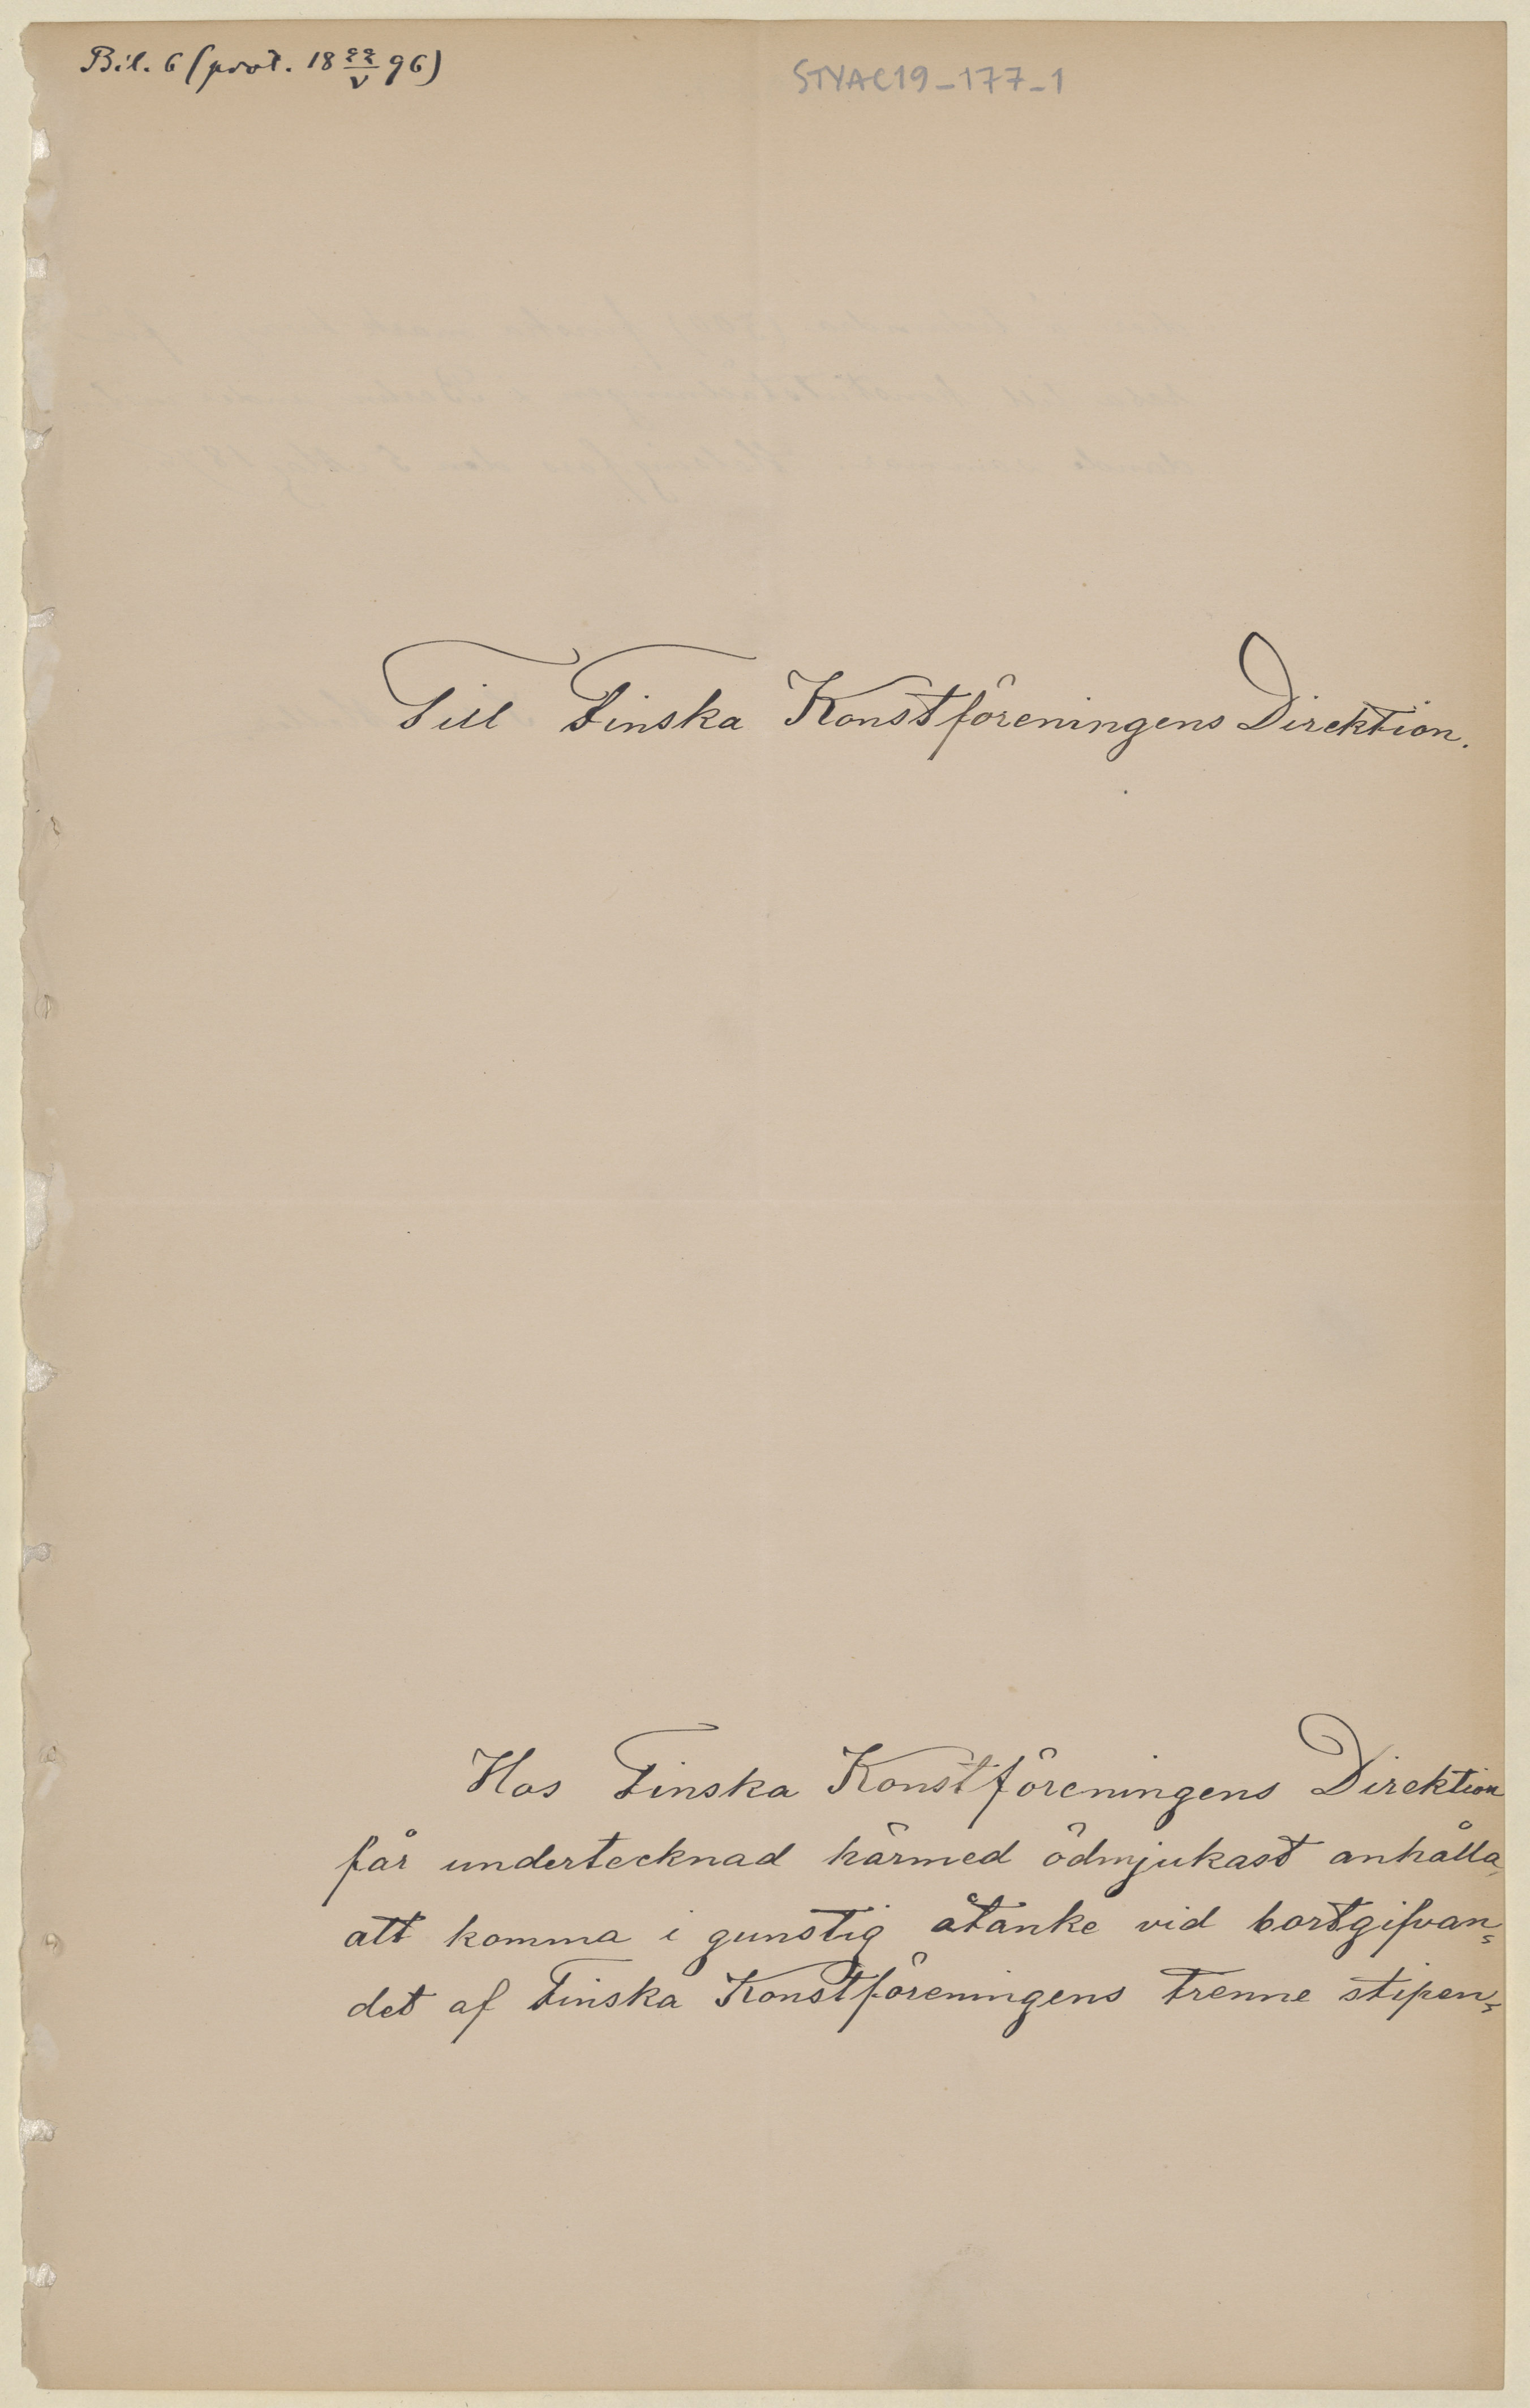 Bil. 6 (prot. 18 22/V 96)
STYAC19_177_1
Till Finska Konstföreningens Direktion.
Hos Finska Konstföreningens Direktion
får undertecknad härmed ödmjukast anhålla,
att komma i gunstig åtanke vid bortgifvan=
det af Finska Konstföreningens trenne stipen=